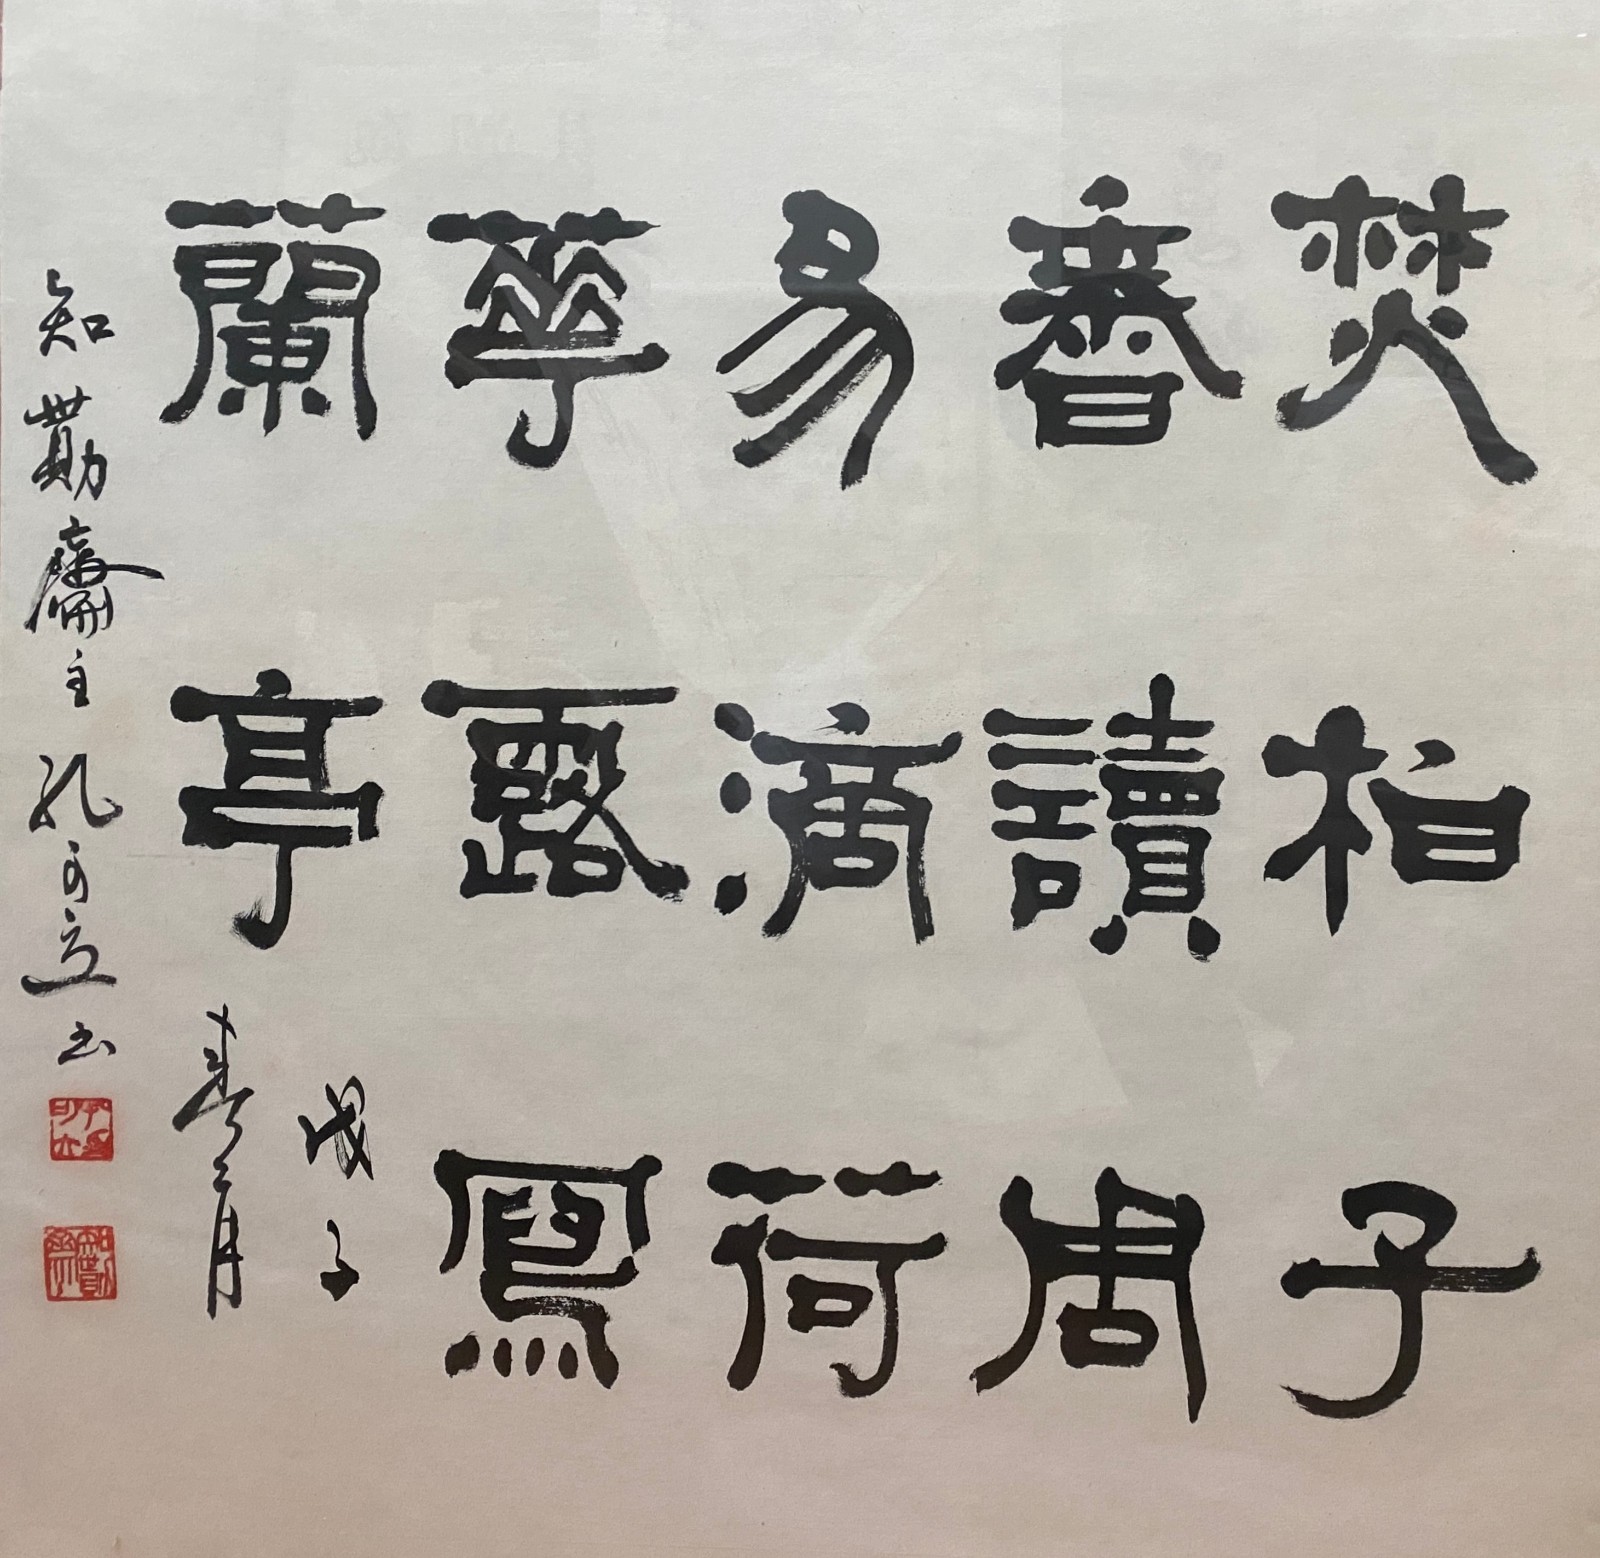 焚柏子
香讀周
易滴荷
華露寫
蘭亭
戊子
春二月
知勤齋主孔可立书